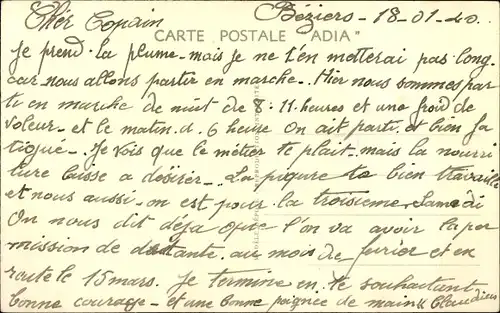 Chér Copain
Béziers - 18-01-40
CARTE POSTALE "ADIA"
je prend la plume - mais je ne t'en metterai pas long.
car nous allons partir en marche - Hier nous sommes par
ti en marche de nuit de 8 : 11 heures et une froid de
voleur - et le matin. d. 6 heure on ait parti. et bien fa
tigué - Je vois que le métier te plait mais la nourri
ture laisse a désirer - La piqure te bien travaille
et nous aussi - on est pour la troisieme Samedi
On nous dit déja que l'on va avoir la per
mission de détante. au mois de fevrier et en
route le 15 mars. Je termine en. te souhaitant
bonne courage - et une bonne poignee de main